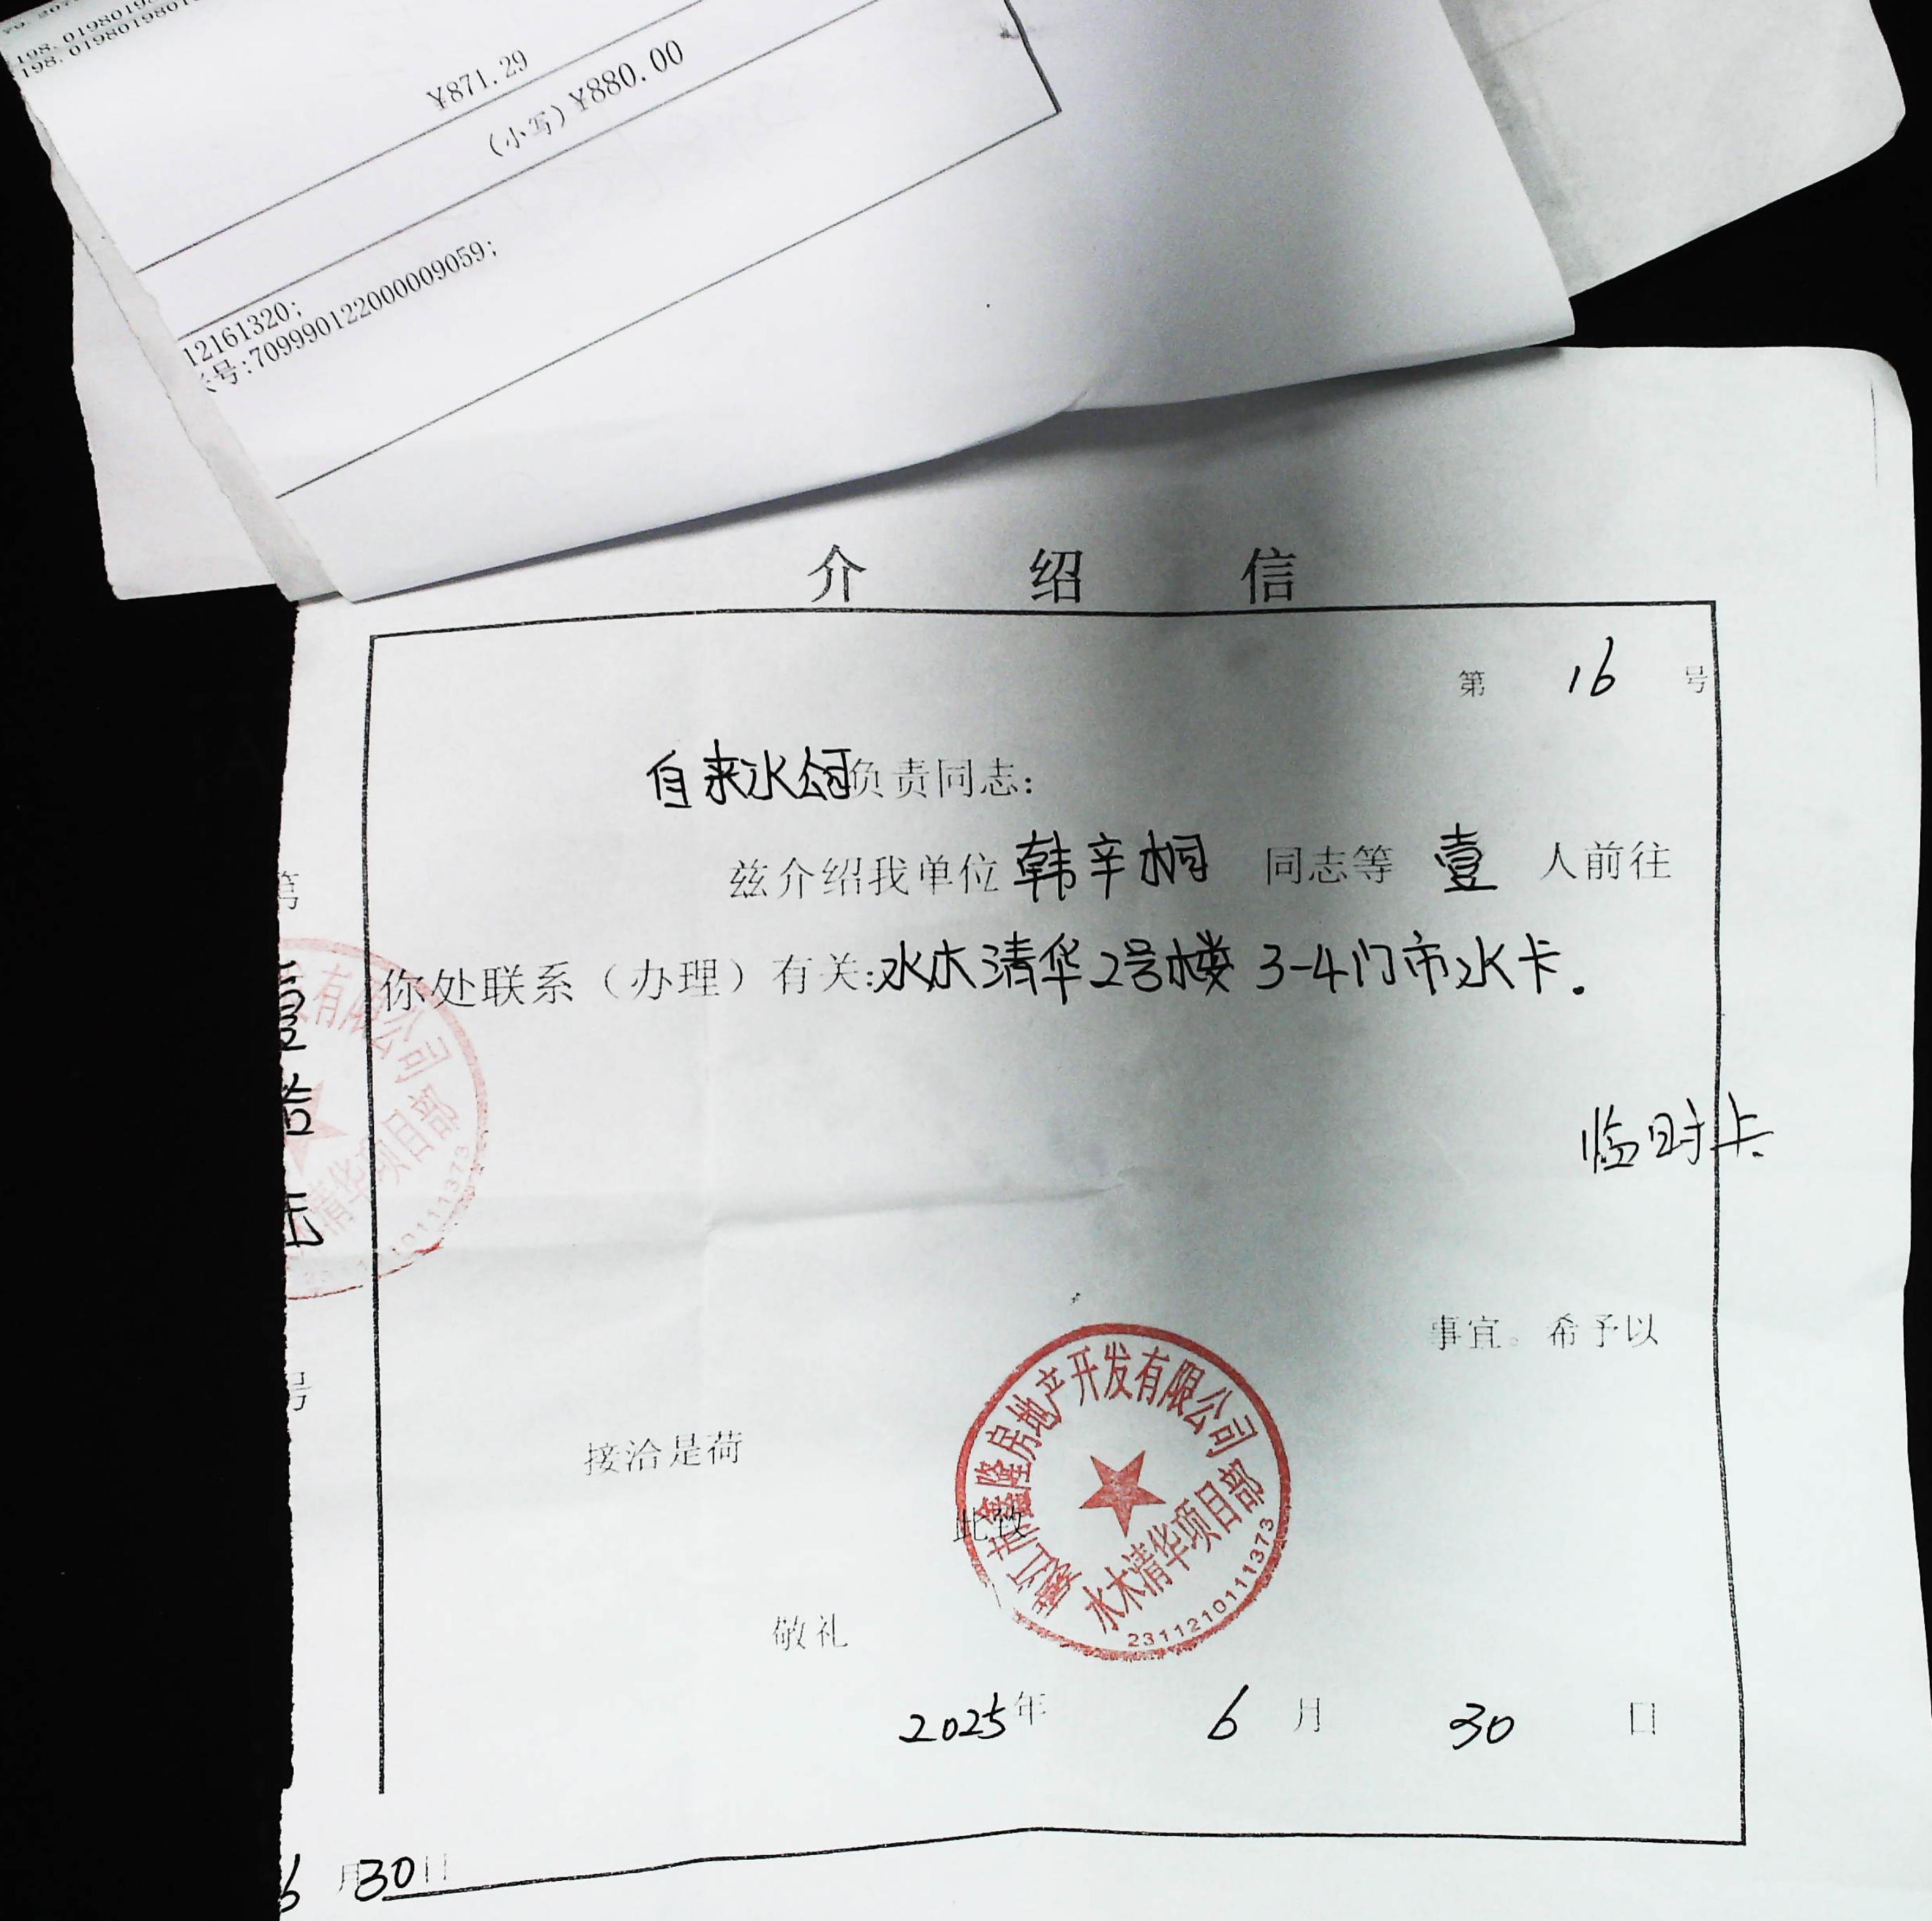 198.019801980
198.0198019801
¥871.29
(小写)¥880.00
12161320;
号:7099901220000009059;
介 绍 信
第 16 号
自来水公司负责同志:
兹介绍我单位韩辛桐 同志等 壹 人前往
你处联系（办理）有关:水木清华2号楼 3-4门市水卡.
临时卡
事宜。希予以
接洽是荷
此致
敬礼
鑫隆房地产开发有限公司
水木清华项目部
2311210111373
2025年 6 月 30 日
第
壹
拾
号
有限公司
清华项目部
111373
6 月30日